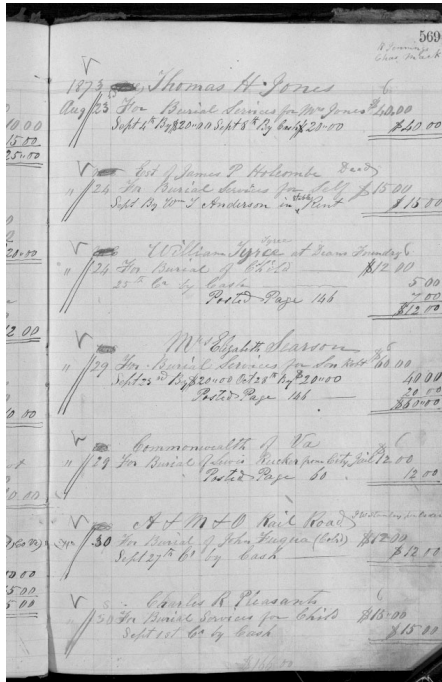 569
1873 Thomas H. Jones
Aug 23 For Burial Services for Mrs Jones $40.00
Sept 4th By $20.00 Sept 8th By Cash $20.00 $40.00
Est of James P Holcombe Dead
" 24 For Burial Services for Self $15.00
Sept By Wm T Anderson in Rent $15.00
William Tyree at Foundry
" 24 For Burial of Child $12.00
25th Cr by Cash 5 00
Posted Page 146 7 00
$12 00
Mrs Elizabeth Searson
" 29 For Burial Services for Son Robt $60.00
Sept 23rd By $20.00 Oct 28th By $20.00 40 00
Posted Page 146 20 00
$60.00
Commonwealth of Va
" 29 For Burial of Lewis Rucker from City Jail $12.00
Posted Page 60 12 00
A & M & O Rail Road
" 30 For Burial of John (Cold) $12.00
Sept 27th Cr by Cash $12 00
Charles R Pleasants
" 30 For Burial Services for Child $15.00
Sept 1st Cr by Cash $15 00
$166.00
10 00
15 00
25.00
12 00